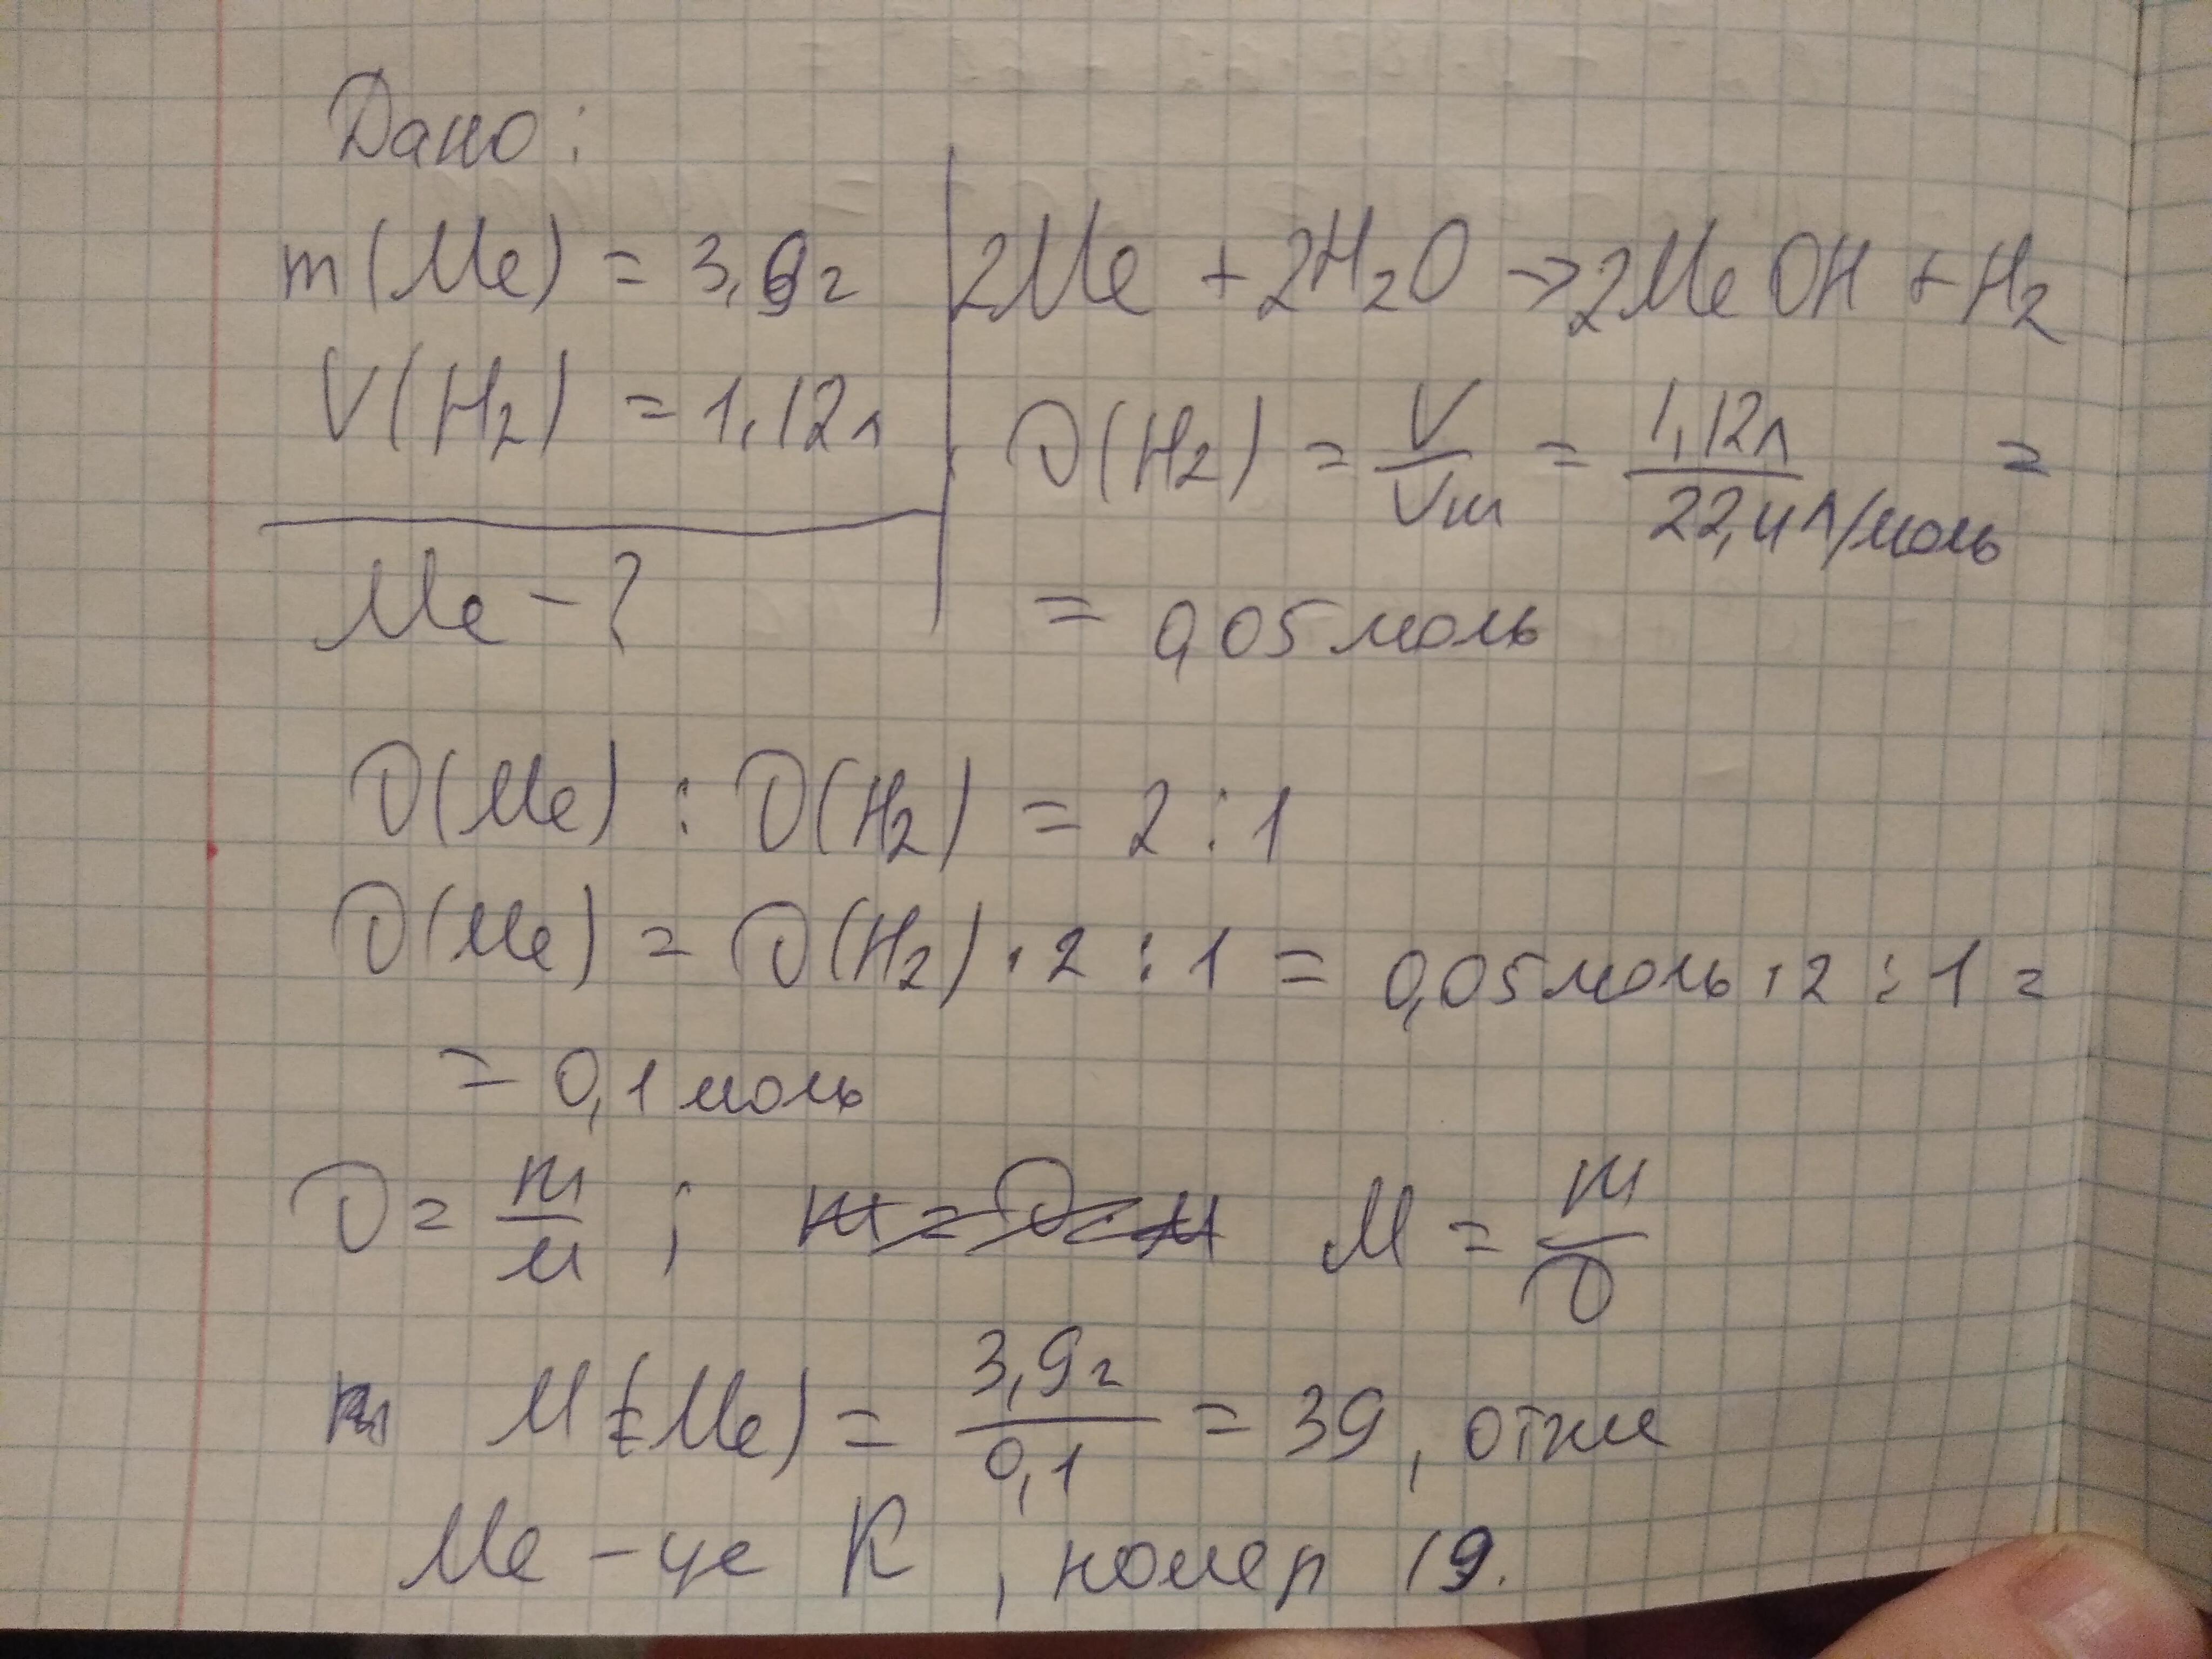 Дано:
m(Me) = 3,9г
V(H₂) = 1,12л
Me - ?
2Me + 2H₂O → 2MeOH + H₂
ν(H₂) = V/Vm = 1,12л/22,4л/моль =
= 0,05 моль
ν(Me) : ν(H₂) = 2 : 1
ν(Me) = ν(H₂) · 2 : 1 = 0,05 моль · 2 : 1 =
= 0,1 моль
ν = m/M ; m = ν · M M = m/ν
M(Me) = 3,9г/0,1 = 39, отже
Me - це K, номер 19.